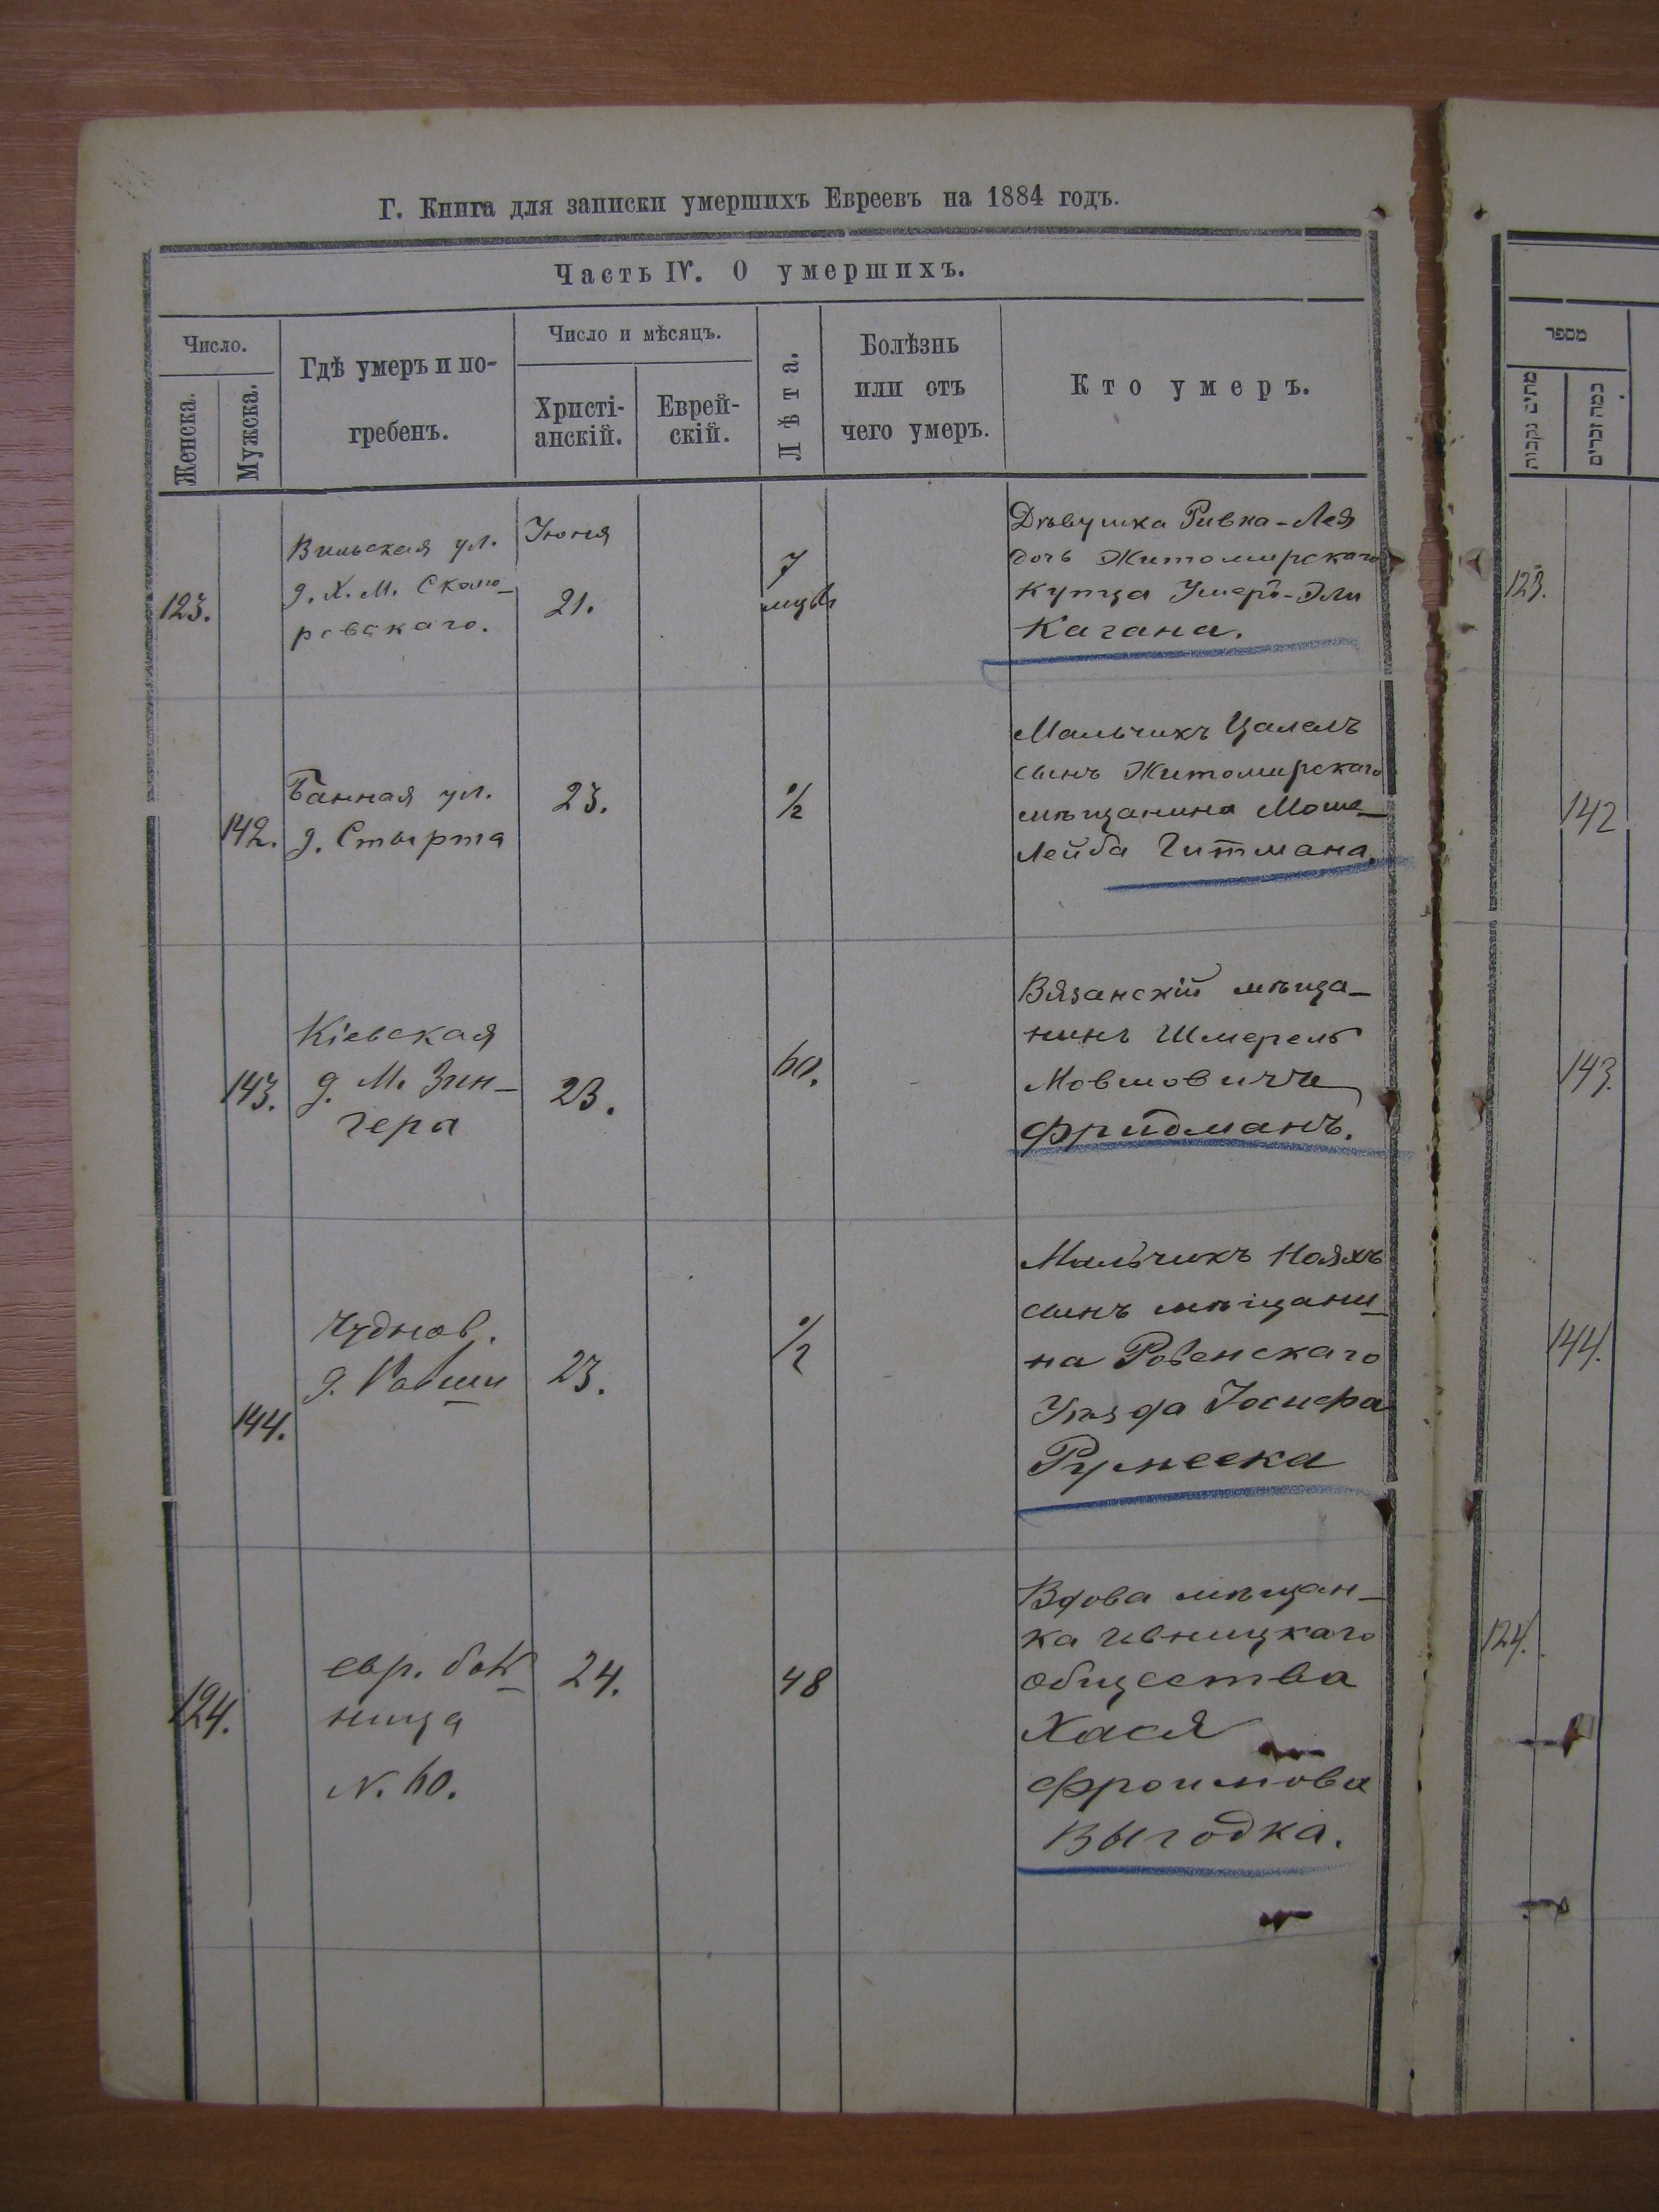 Г. Книга для записки умершихъ Евреевъ на 1884 годъ.
Часть IV. О умершихъ.
Число.
Женска.
Мужска.
Гдѣ умеръ и по-
гребенъ.
Число и мѣсяцъ.
Христі-
анскій.
Еврей-
скій.
Лѣта.
Болѣзнь
или отъ
чего умеръ.
Кто умеръ.
מספר
מתים נקבות
כמה זכרים
123.
Вильская ул.
д. Х. М. Скомо-
ровскаго.
Іюня
21.
7
мцвъ
Дѣвушка Ривка-Лея
дочь Житомирскаго
Купца Умеръ-Эли
Кагана.
123.
142.
Банная ул.
д. Стырта
23.
1/2
Мальчикъ Цалелъ
сынъ Житомирскаго
мѣщанина Моше-
Лейба Гитмана.
142
143.
Кіевская
д. М. Зин-
гера
23.
60.
Вязанскій мѣща-
нинъ Шмерель
Мовшовичъ
Фридманъ.
143.
144.
Чуднов.
д.
23.
1/2
Мальчикъ Нояхъ
сынъ мѣщани-
на Ровенскаго
Уѣзда Іосифа
144.
124.
евр. боль-
ница
N. 60.
24.
48
Вдова мѣщан-
ка Ивницкаго
общества
Хася
Фроимова
Выгодка.
124.